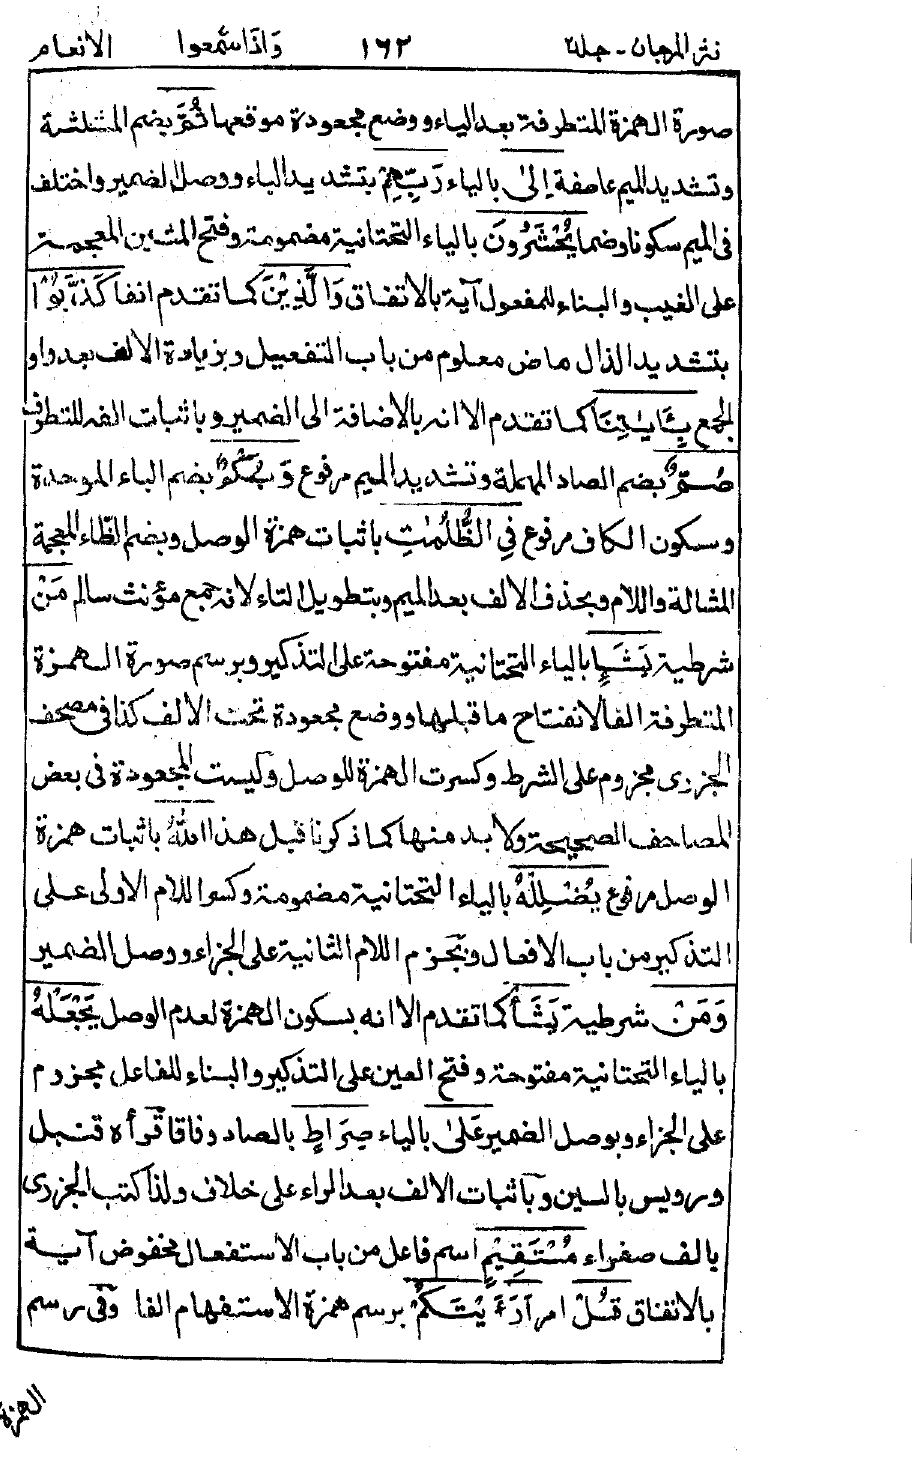 نثر المرجان - جلد ٢ ١٦٢ وَاذَا سَمعوا الانعام
صورة الهمزة المتطرفة بعد الياء ووضع مجعودة موقعها ثُمَّ بضم المثلثة
وتشديد الميم عاطفة اِلىٰ بالياء رَبِّهِمْ بتشديد الباء ووصل الضمير واختلف
فى الميم سكونا وضما يُحْشَرُونَ بالياء التحتانية مضمومة وفتح الشين المعجمة
على الغيب والبناء للمفعول آية بالاتفاق وَالَّذِيْنَ كما تقدم انفا كَذَّبُوْا
بتشديد الذال ماض معلوم من باب التفعيل وبزيادة الالف بعد واو
الجمع بِئَايٰتِنَا كما تقدم الا انه بالاضافة الى الضمير وباثبات الفه للتطرف
صُمٌّ بضم الصاد المهملة وتشديد الميم مرفوع وَّبُكْمٌ بضم الباء الموحدة
وسكون الكاف مرفوع فِي الظُّلُمٰتِ باثبات همزة الوصل وبضم الظاء المعجمة
المشالة واللام وبحذف الالف بعد الميم وبتطويل التاء لانه جمع مؤنث سالم مَنْ
شرطية يَشَإِ بالياء التحتانية مفتوحة على التذكير وبرسم صورة الهمزة
المتطرفة الفا لانفتاح ما قبلها ووضع مجعودة تحت الالف كذا فى مصحف
الجزرى مجزوم على الشرط وكسرت الهمزة للوصل وليست المجعودة فى بعض
المصاحف الصحيحة ولا بد منها كما ذكرنا قبل هذا اللهُ باثبات همزة
الوصل مرفوع يُضْلِلْهُ بالياء التحتانية مضمومة وكسر اللام الاولى على
التذكير من باب الافعال وبجزم اللام الثانية على الجزاء ووصل الضمير
وَمَنْ شرطية يَشَأْ كما تقدم الا انه بسكون الهمزة لعدم الوصل يَجْعَلْهُ
بالياء التحتانية مفتوحة وفتح العين على التذكير والبناء للفاعل مجزوم
على الجزاء وبوصل الضمير عَلىٰ بالياء صِرَاطٍ بالصاد وفاقا قرأه قنبل
ورويس بالسين وباثبات الالف بعد الراء على خلاف ولذا كتب الجزرى
بالف صفراء مُسْتَقِيْمٍ اسم فاعل من باب الاستفعال مخفوض آية
بالاتفاق قُلْ اَرَءَيْتَكُمْ برسم همزة الاستفهام الفا وفى رسم
الهمزة